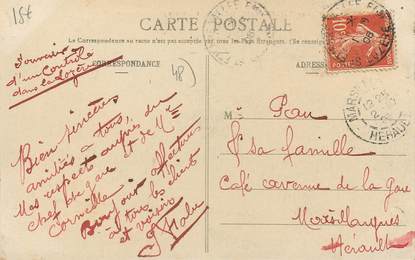 15€
CARTE POSTALE
La Correspondance au recto n'est pas acceptée par tous les Pays Étrangers.
CORRESPONDANCE
ADRESSE
Souvenir
d'un Contrôle
dans la Lozère
(48)
Bien sincères
amitiés à tous,
Mes respects auprès du
chef de gare et de Mme
Corneille
Bonjour affectueux
à tous les clients
et voisins
M
Pau
& sa famille
Café avenue de la Gare
Marsillargues
Hérault
10
MARSI
HERAULT